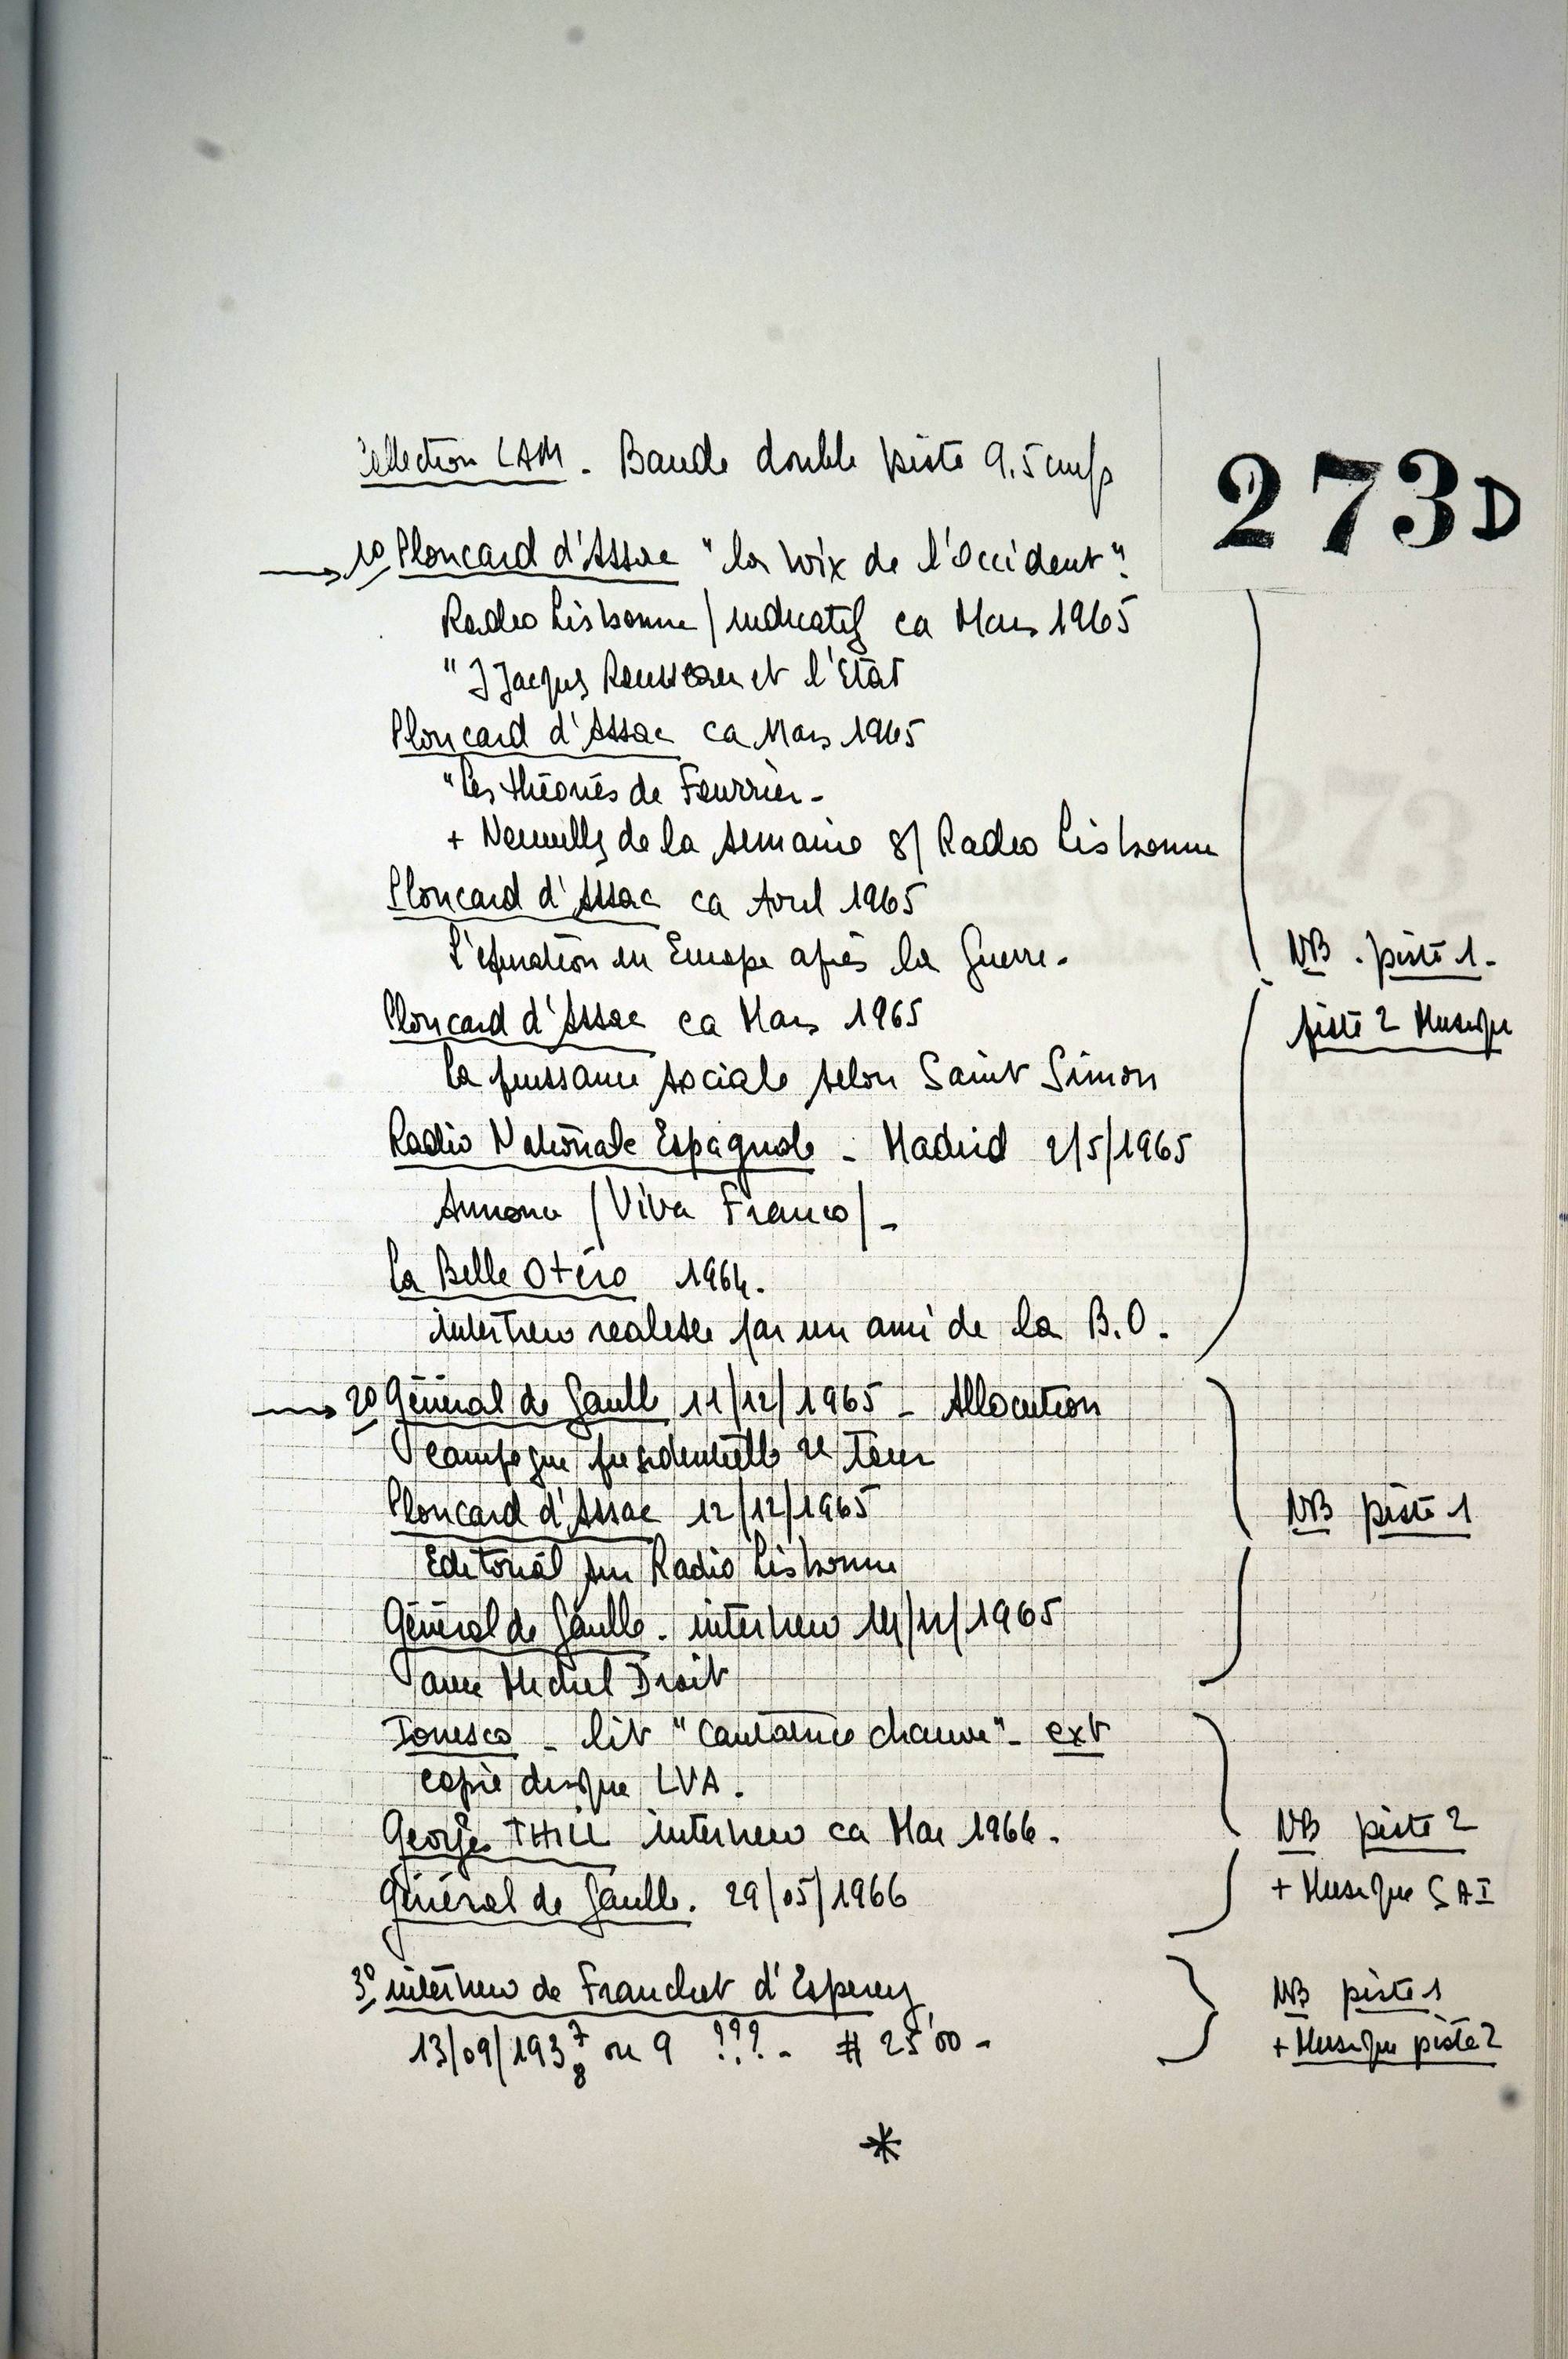 Collection LAM - Bande double piste 9,5 cm/s
273D
→ 1º Ploncard d'Assac "la Voix de l'Occident".
Radio Lisbonne / indicatif ca Mars 1965
"J Jacques Rousseau et l'Etat
Ploncard d'Assac ca Mars 1965
"Les théories de Fourrier -
+ Nouvelles de la semaine s/ Radio Lisbonne
Ploncard d'Assac ca Avril 1965
L'épuration en Europe après la Guerre -
NB - piste 1 -
Ploncard d'Assac ca Mars 1965
piste 2 Musique
La puissance sociale selon Saint Simon
Radio Nationale Espagnole - Madrid 2/5/1965
Annonce / Viva Franco / -
La Belle Otéro 1964.
interview realisée par un ami de la B.O -
→ 2º Général de Gaulle 11/12/1965 - Allocution
campagne présidentielle 2e Tour
Ploncard d'Assac 12/12/1965
NB piste 1
Editorial sur Radio Lisbonne
Général de Gaulle - interview 1965
avec Michel Droit
Ionesco - lit "Cantatrice chauve" - ext
copie disque LVA.
Georges THILL interview ca Mai 1966.
NB piste 2
Général de Gaulle. 29/05/1966
+ Musique SAI
3º interview de Franchet d'Esperey
NB piste 1
13/09/193 7 8 ou 9 ??? - # 25'00 -
+ Musique piste 2
*